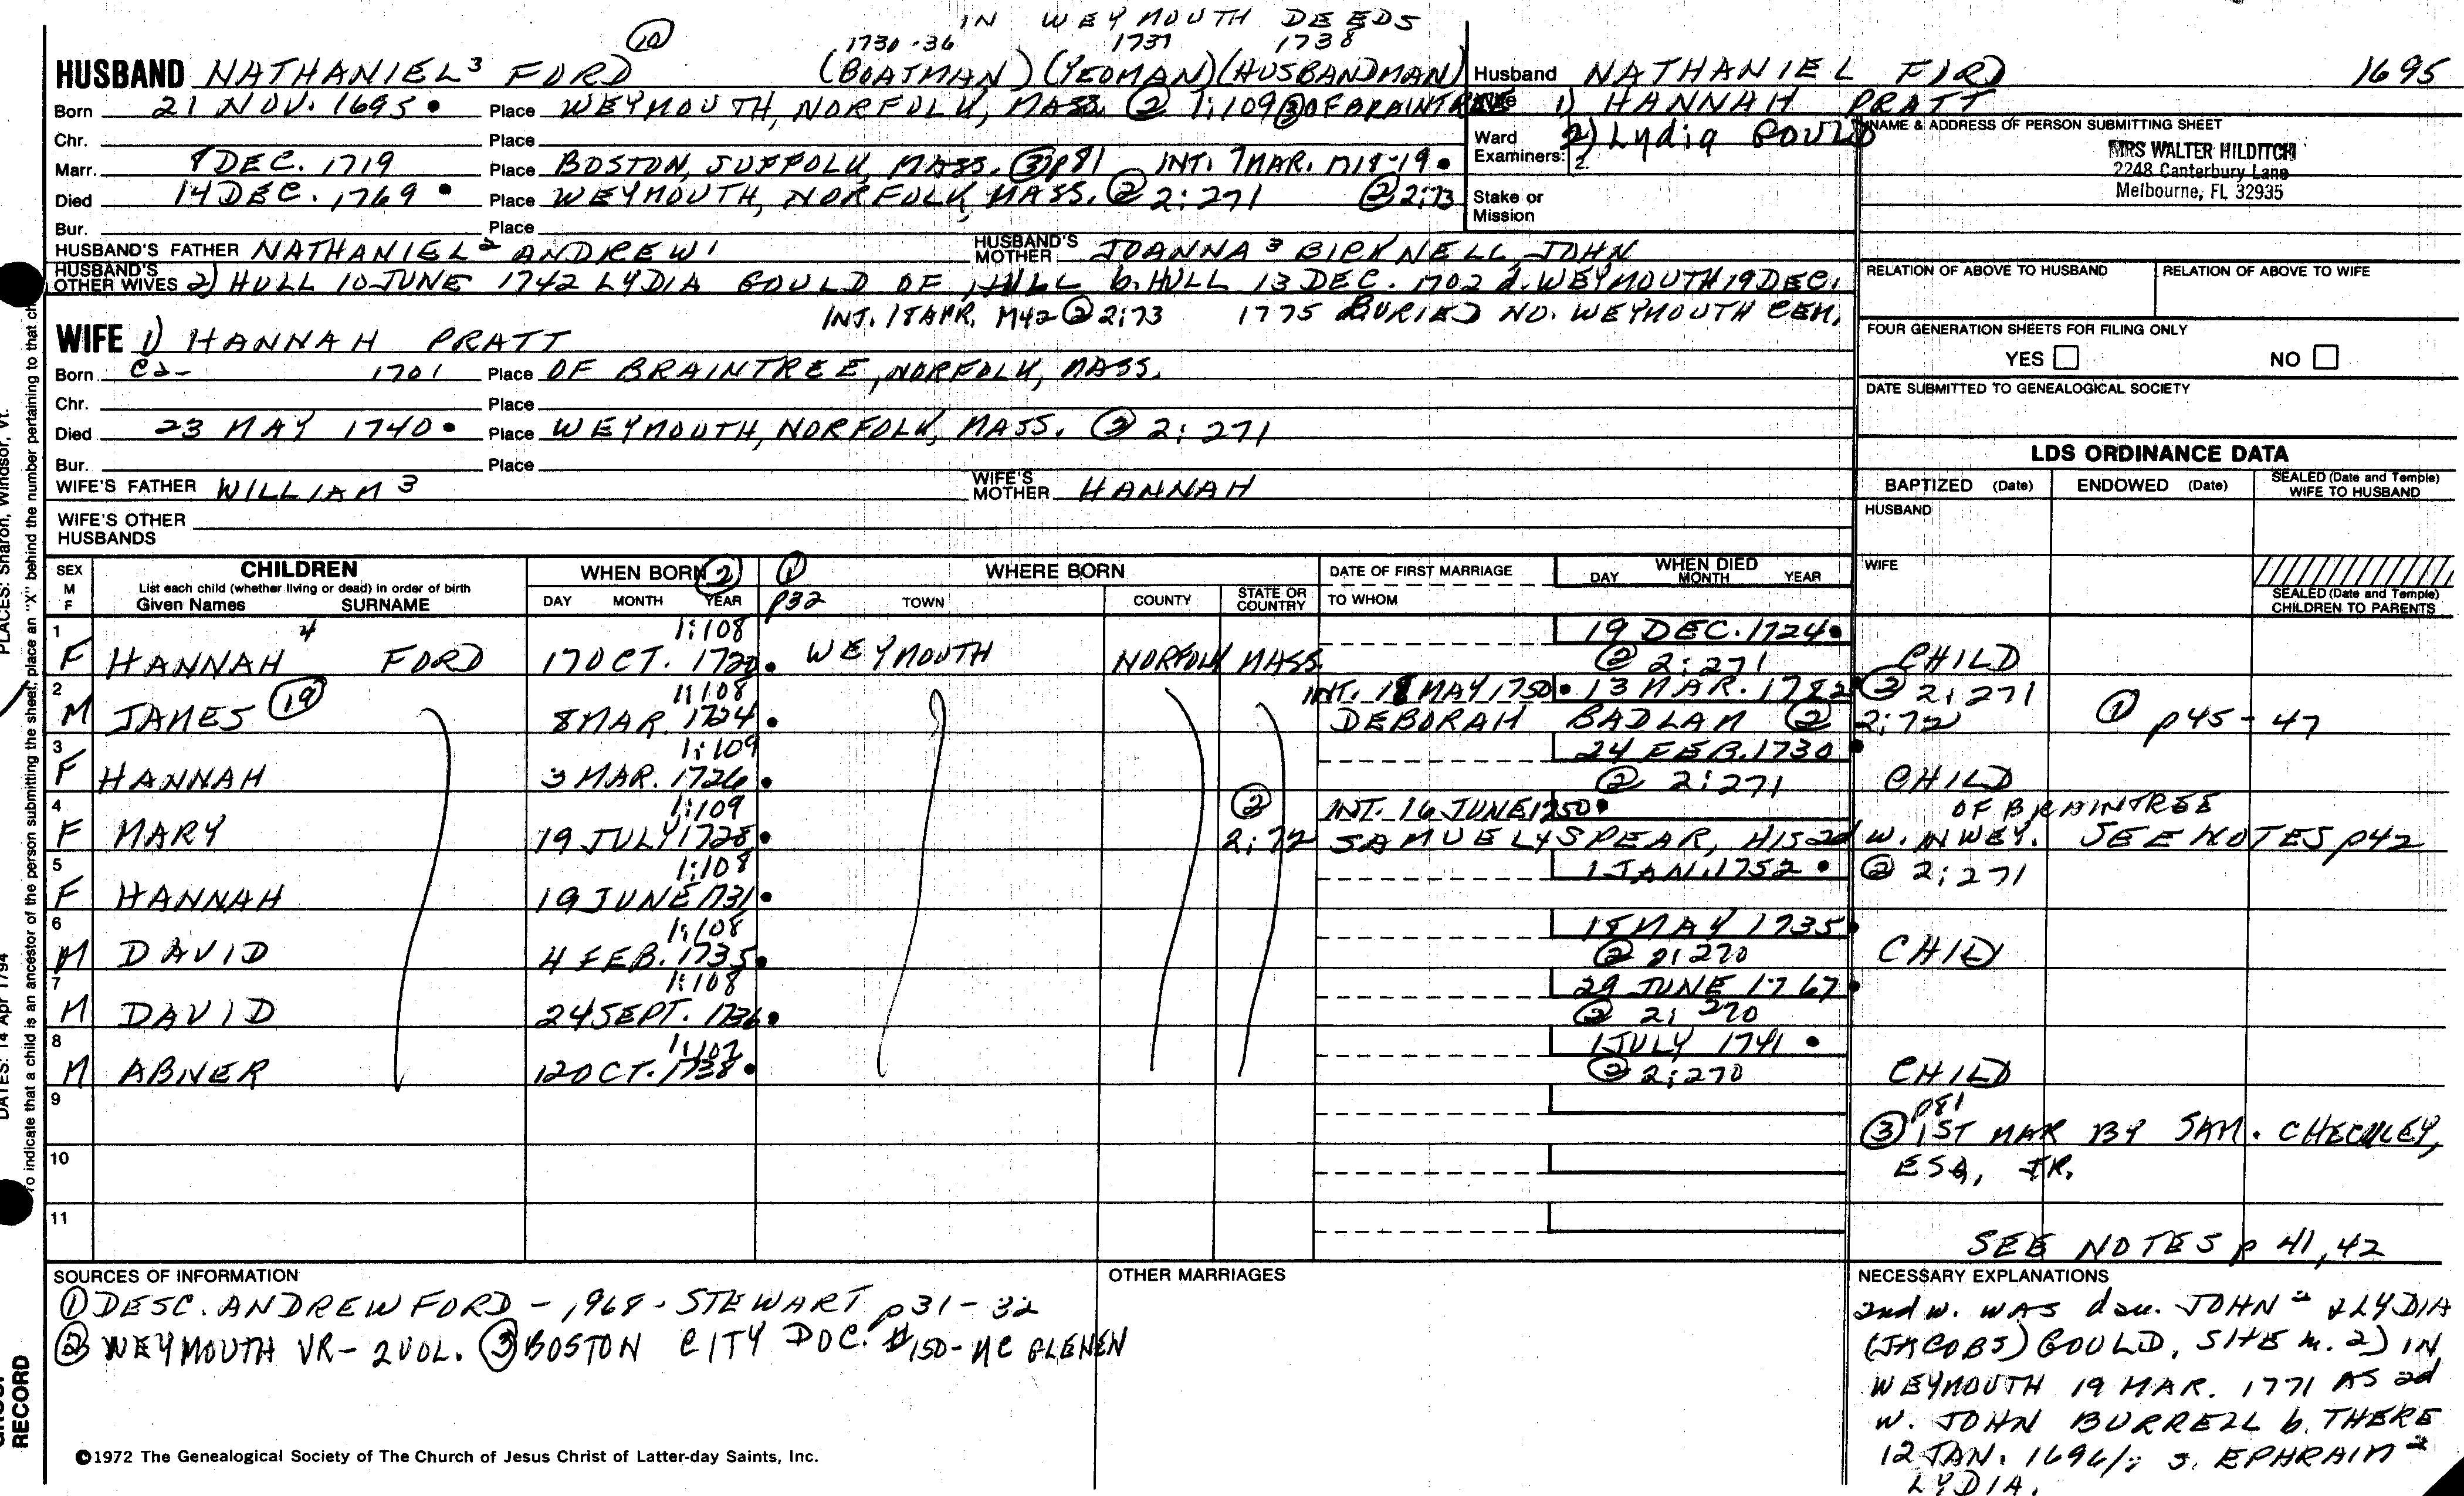 IN WEYMOUTH DEEDS
(10) 1730-36 1737 1738
HUSBAND NATHANIEL³ FORD (BOATMAN) (YEOMAN) (HUSBANDMAN)
Born 21 NOV. 1695 • Place WEYMOUTH, NORFOLK, MASS. (2) 1:109 (3) OF BRAINTREE
Chr. Place
Marr. 8 DEC. 1719 Place BOSTON, SUFFOLK, MASS. (3) p81 INT. 7 MAR. 1718-19 •
Died 14 DEC. 1769 • Place WEYMOUTH, NORFOLK, MASS. (2) 2:271 (2) 2:73
Bur. Place
HUSBAND'S FATHER NATHANIEL² ANDREW¹ HUSBAND'S MOTHER JOANNA³ BICKNELL, JOHN
HUSBAND'S OTHER WIVES 2) HULL 10 JUNE 1742 LYDIA GOULD OF HULL b. HULL 13 DEC. 1702 d. WEYMOUTH 19 DEC.
INT. 18 APR. 1742 (2) 2:73 1775 BURIED NO. WEYMOUTH CEM.
WIFE 1) HANNAH PRATT
Born ca- 1701 Place OF BRAINTREE, NORFOLK, MASS.
Chr. Place
Died 23 MAY 1740 • Place WEYMOUTH, NORFOLK, MASS. (2) 2:271
Bur. Place
WIFE'S FATHER WILLIAM³ WIFE'S MOTHER HANNAH
WIFE'S OTHER HUSBANDS
Husband NATHANIEL FORD 1695
Wife 1) HANNAH PRATT
Ward 2) Lydia GOULD
Examiners: 2
Stake or Mission
NAME & ADDRESS OF PERSON SUBMITTING SHEET
MRS WALTER HILDITCH
2248 Canterbury Lane
Melbourne, FL 32935
RELATION OF ABOVE TO HUSBAND RELATION OF ABOVE TO WIFE
FOUR GENERATION SHEETS FOR FILING ONLY
YES NO
DATE SUBMITTED TO GENEALOGICAL SOCIETY
LDS ORDINANCE DATA
BAPTIZED (Date) ENDOWED (Date) SEALED (Date and Temple) WIFE TO HUSBAND
HUSBAND
WIFE
SEALED (Date and Temple) CHILDREN TO PARENTS
SEX M F CHILDREN WHEN BORN (2) (1) p32 WHERE BORN DATE OF FIRST MARRIAGE WHEN DIED
List each child (whether living or dead) in order of birth
Given Names SURNAME DAY MONTH YEAR TOWN COUNTY STATE OR COUNTRY TO WHOM DAY MONTH YEAR
1 1:108 19 DEC. 1724 •
F HANNAH⁴ FORD 17 OCT. 1720 • WEYMOUTH NORFOLK MASS. (2) 2:271 CHILD
2 1:108 INT. 18 MAY 1750 • 13 MAR. 1782 • (2) 2:271
M JAMES (19) 8 MAR. 1724 • DEBORAH BADLAM (2) 2:72 (1) p45-47
3 1:109 24 FEB. 1730 •
F HANNAH 3 MAR. 1726 • (2) 2:271 CHILD
4 1:109 (2) INT. 16 JUNE 1750 • OF BRAINTREE
F MARY 19 JULY 1728 • 2:72 SAMUEL⁴ SPEAR, HIS 2d W. IN WEY. SEE NOTES p42
5 1:108 1 JAN. 1752 • (2) 2:271
F HANNAH 19 JUNE 1731 •
6 1:108 18 MAY 1735 •
M DAVID 4 FEB. 1735 • (2) 2:270 CHILD
7 1:108 29 JUNE 1767 •
M DAVID 24 SEPT. 1736 • (2) 2:270
8 1:107 1 JULY 1741 •
M ABNER 12 OCT. 1738 • (2) 2:270 CHILD
9 p81
(3) 1ST MAR BY SAM. CHECKLEY,
10 ESQ, JR.
11
SEE NOTES p 41, 42
SOURCES OF INFORMATION
(1) DESC. ANDREW FORD - 1968 - STEWART p31-32
(2) WEYMOUTH VR - 2 VOL. (3) BOSTON CITY DOC. #150 - MC GLENEN
OTHER MARRIAGES
NECESSARY EXPLANATIONS
2nd w. WAS dau. JOHN² & LYDIA
(JACOBS) GOULD, SHE m. 2) IN
WEYMOUTH 19 MAR. 1771 AS 2d
W. JOHN BURRELL b. THERE
12 JAN. 1696/7 S. EPHRAIM²
LYDIA.
©1972 The Genealogical Society of The Church of Jesus Christ of Latter-day Saints, Inc.
PLACES: Sharon, Windsor, Vt.
DATES: 14 Apr 1794
To indicate that a child is an ancestor of the person submitting the sheet, place an "X" behind the number pertaining to that
RECORD